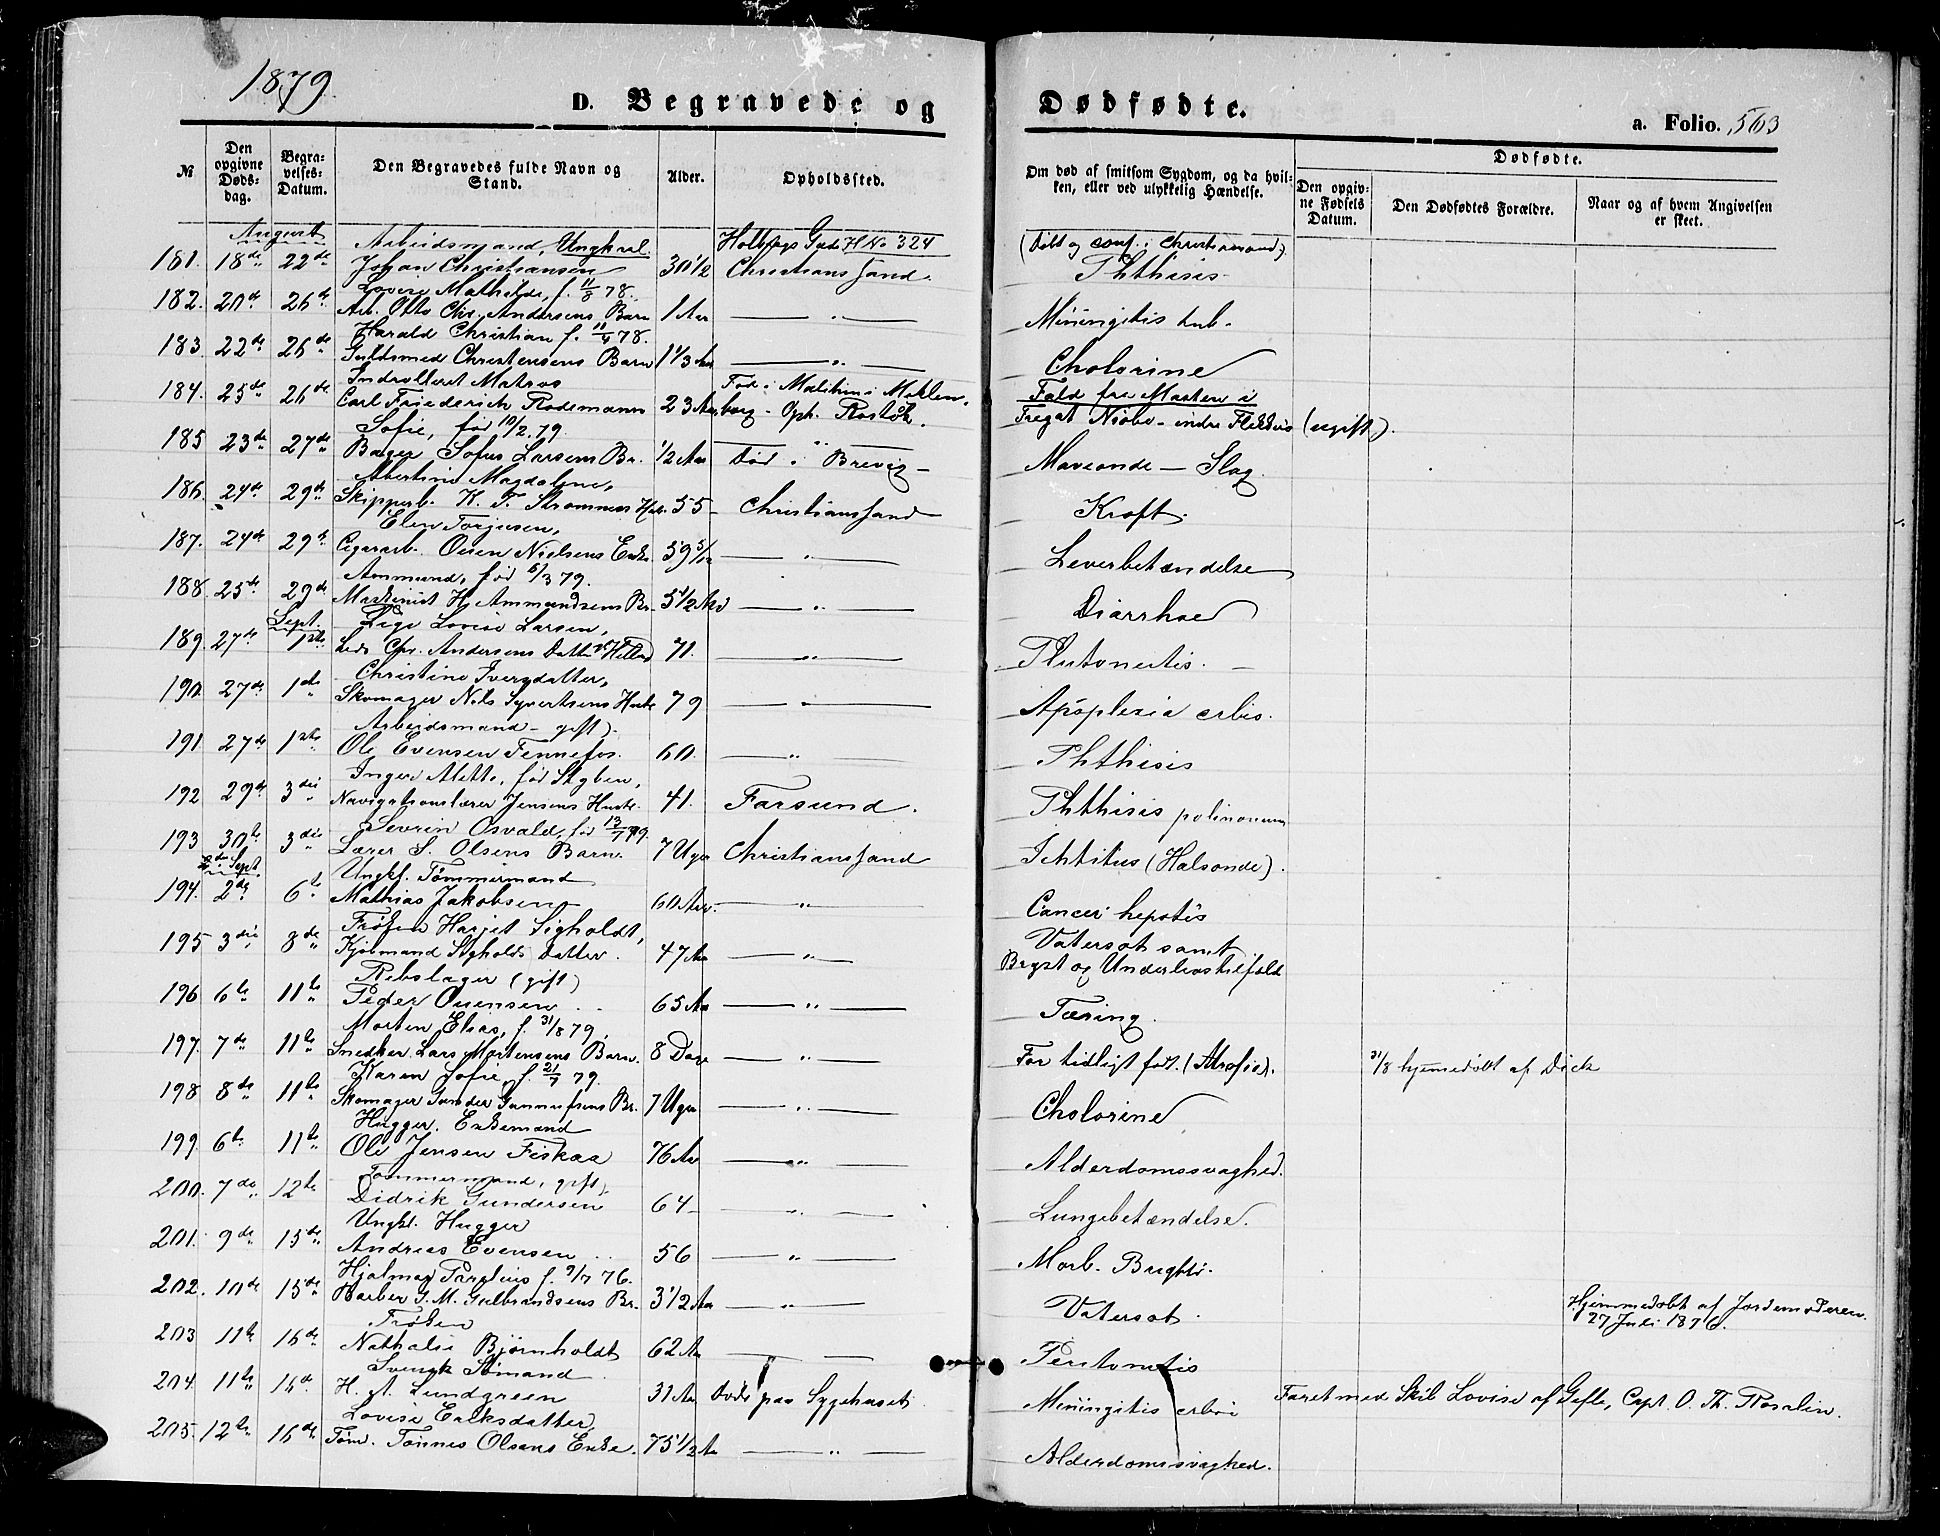 1879
D. Begravede og Dødfødte.
a. Folio. 563
№
Den opgivne Dødsdag.
Begravelses-Datum.
Den Begravedes fulde Navn og Stand.
Alder.
Opholdssted.
Om død af smitsom Sygdom, og da hvilken, eller ved ulykkelig Hændelse.
Dødfødte.
Den opgivne Fødsels Datum.
Den Dødfødtes Forældre.
Naar og af hvem Angivelsen er skeet.
August Arbeidsmand, Ungkarl. Gade H No 324 (Døbt og conf. i Christianssand)
181. 18de 22de Johan Christiansen 30 1/2 Christianssand. Phthisis
Lovise Mathilde, f. 11/8 78.
182. 20de 26de Arb. Otto Chr. Andersens Barn 1 Aar — „ — Miningitis tub.
Harald Christian f. 11/4 78.
183. 22de 26de Guldsmed Christensens Barn 1 1/3 Aar — „ — Cholorine
Indrolleret Matros Fød i Malchin i Meklen- Fald fra Masten i
184. 25de 26de Carl Friederich Rodemann 23 Aar borg - Oph. Rostok. Fregat Niobe - indre (ugift).
Sofie, fød 10/2 79.
185 23de 27de Bager Sofus Larsens Br. 1/2 Aar Død i Brevig — Maveonde — Slag.
Albertine Magdalene,
186. 24de 29de Skipperb. K. T. Strømmes Hus. 55 - Christianssand Kræft.
Elen Torjusen,
187. 24de 29de Cigararb. Ouen Nielsens Enke 59 5/12 — „ — Leverbetændelse
Ammund, fød 6/3 79.
188. 25de 29de Maskinist H. Ammundsens Br. 5 1/2 Md — „ — Diarrhoe
Sept. Pige Lovise Larsen,
189. 27de 1ste Chr. Andersens Datter 71. — „ —
Christine Iversdatter,
190. 27de 1ste Skomager Nils Syvertsens Hustr. 79 — „ — Apoplexia
Arbeidsmand - gift).
191 27de 1ste Ole Evensen Fennefos. 60. — „ — Phthisis
Inger Mette, fød Styben,
192 29de 3die Navigationslærer Jensens Hustr. 41. Farsund. Phthisis
Sevrin Osvald, fød 13/7 79.
193 30te 3die Lærer S. Olsens Barn. 7 Uger Christianssand (Halsonde).
Sept. Ungkl. Tømmermand
194. 2de 6te Mathias Jakobsen 60 Aar. — „ — Cancer hepatis
Frøken Harjet Sigholdt, Vatersot samt
195 3die 8de Kjøbmand Sigholds Datter. 47 Aar — „ — Bryst og Underlivstilfælde
Rebslager (gift)
196 6te 11te Peder Ouensen 65 Aar — „ — Tæring.
Morten Elias, f. 31/8 79,
197. 7de 11te Snedker Lars Mortensens Barn. 8 Dage — „ — For tidligt født. (Atrofie). 31/8 hjemedøbt af Dick
Karen Sofie, f. 21/7 79.
198 8de 11te Skomager Gunder Gunnufsens Br. 7 Uger — „ — Cholorine
Hugger. Enkemand
199. 6te 11te Ole Jensen Fiskaa 76 Aar — „ — Alderdomssvaghed.
Tømmermand, gift)
200. 7de 12te Didrik Gundersen 64 - — „ — Lungebetændelse.
Ungkl. Hugger
201. 9de 15de Andreas Evensen 56 — „ — Morb. Brighti.
Hjalmar f. 9/7 76.
202. 10de 15de Barber G. M. Gulbrandsens Br. 3 1/2 Aar — „ — Vatersot. Hjemmedøbt af Jordemoderen 27 Juli 1876.
Frøken
203 11te 16de Nathalie Bjørnholdt 62 Aar — Peritonitis
Svensk Sømand
204 11te 16de H. A. Lundgreen 31 Aar Døde paa Sygehuset. Miningitis Faret med Skib Lovise af Gefle, Capt. O. Th. Rosalin.
Lovise Eriksdatter,
205. 12te 16de Tøm. Tønnes Olsens Enke. 75 1/2 Aar — „ — Alderdomssvaghed.